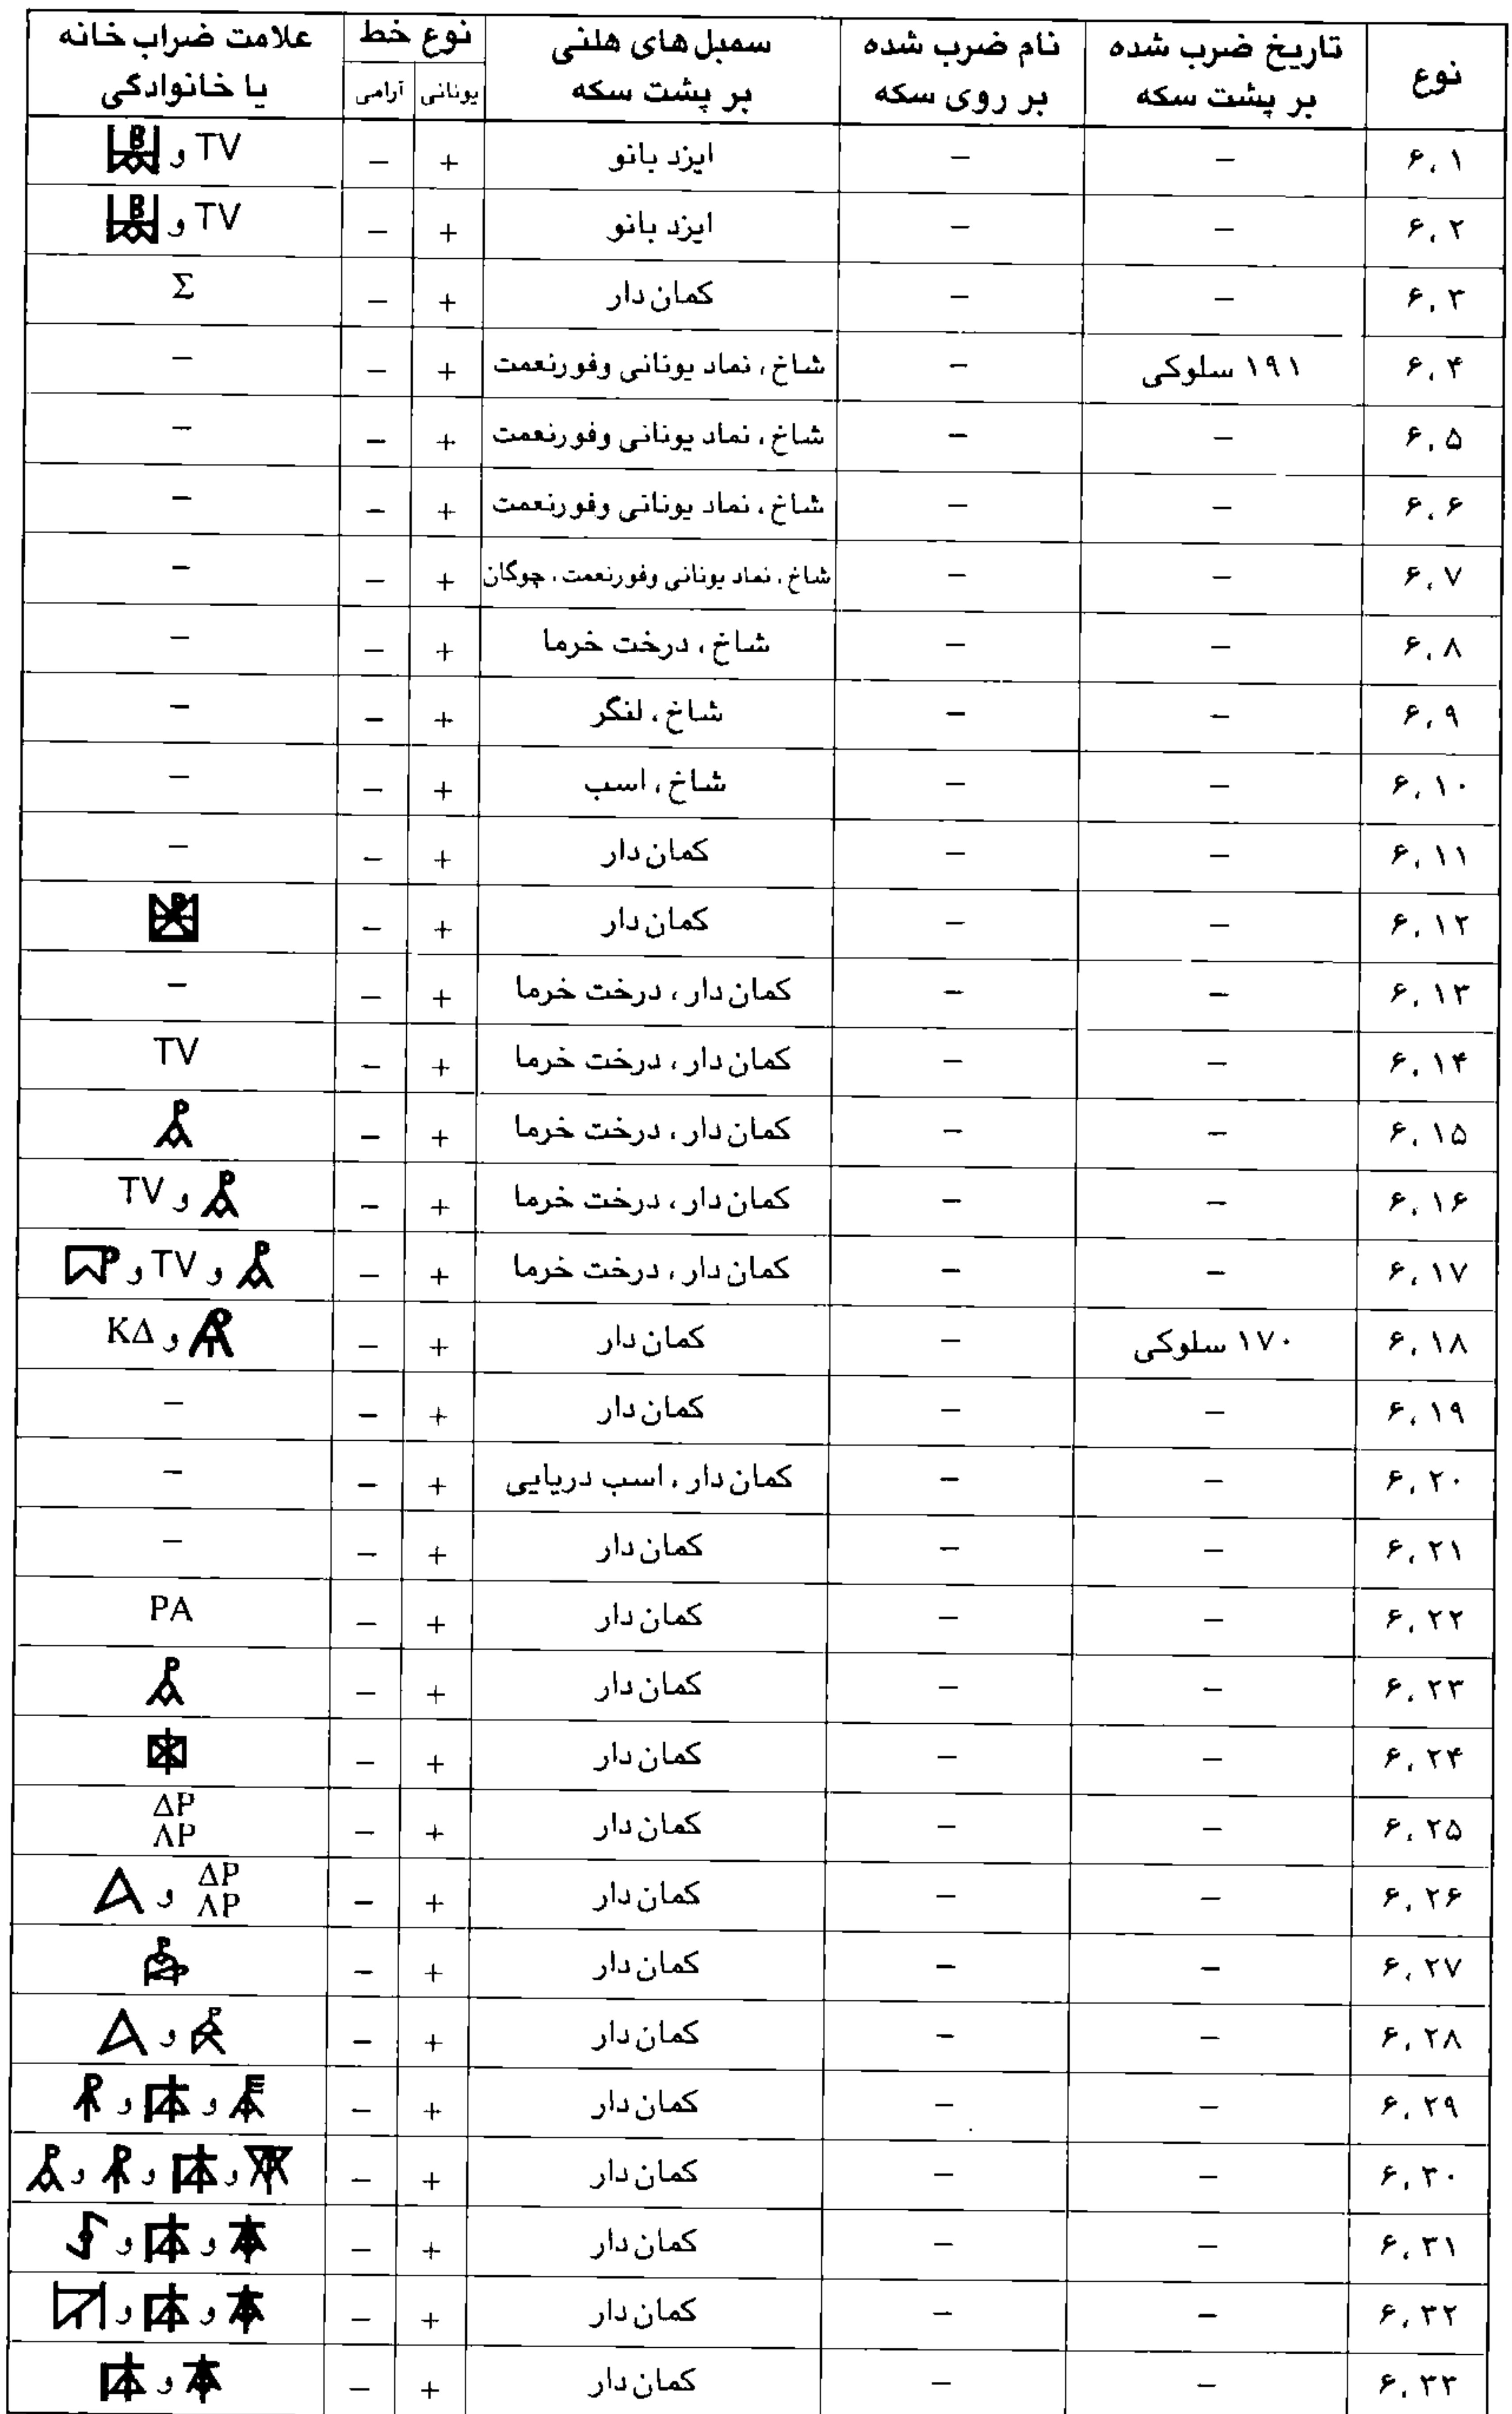 نوع | تاریخ ضرب شده بر پشت سکه | نام ضرب شده بر روی سکه | سمبل های هلنی بر پشت سکه | نوع خط یونانی | آرامی | علامت ضراب خانه یا خانوادگی
۶,۱ | – | – | ایزد بانو | + | – | TV و
۶,۲ | – | – | ایزد بانو | + | – | TV و
۶,۳ | – | – | کمان دار | + | – | Σ
۶,۴ | ۱۹۱ سلوکی | – | شاخ، نماد یونانی وفورنعمت | + | – | –
۶,۵ | – | – | شاخ، نماد یونانی وفورنعمت | + | – | –
۶,۶ | – | – | شاخ، نماد یونانی وفورنعمت | + | – | –
۶,۷ | – | – | شاخ، نماد یونانی وفورنعمت، چوگان | + | – | –
۶,۸ | – | – | شاخ، درخت خرما | + | – | –
۶,۹ | – | – | شاخ، لنگر | + | – | –
۶,۱۰ | – | – | شاخ، اسب | + | – | –
۶,۱۱ | – | – | کمان دار | + | – | –
۶,۱۲ | – | – | کمان دار | + | –
۶,۱۳ | – | – | کمان دار، درخت خرما | + | – | –
۶,۱۴ | – | – | کمان دار، درخت خرما | + | – | TV
۶,۱۵ | – | – | کمان دار، درخت خرما | + | –
۶,۱۶ | – | – | کمان دار، درخت خرما | + | – | و TV
۶,۱۷ | – | – | کمان دار، درخت خرما | + | – | و TV و
۶,۱۸ | ۱۷۰ سلوکی | – | کمان دار | + | – | و ΚΔ
۶,۱۹ | – | – | کمان دار | + | – | –
۶,۲۰ | – | – | کمان دار، اسب دریایی | + | – | –
۶,۲۱ | – | – | کمان دار | + | – | –
۶,۲۲ | – | – | کمان دار | + | – | PA
۶,۲۳ | – | – | کمان دار | + | –
۶,۲۴ | – | – | کمان دار | + | –
۶,۲۵ | – | – | کمان دار | + | – | ΔΡ ΛΡ
۶,۲۶ | – | – | کمان دار | + | – | ΔΡ ΛΡ و
۶,۲۷ | – | – | کمان دار | + | –
۶,۲۸ | – | – | کمان دار | + | – | و
۶,۲۹ | – | – | کمان دار | + | – | و و
۶,۳۰ | – | – | کمان دار | + | – | و و و
۶,۳۱ | – | – | کمان دار | + | – | و و
۶,۳۲ | – | – | کمان دار | + | – | و و
۶,۳۳ | – | – | کمان دار | + | – | و